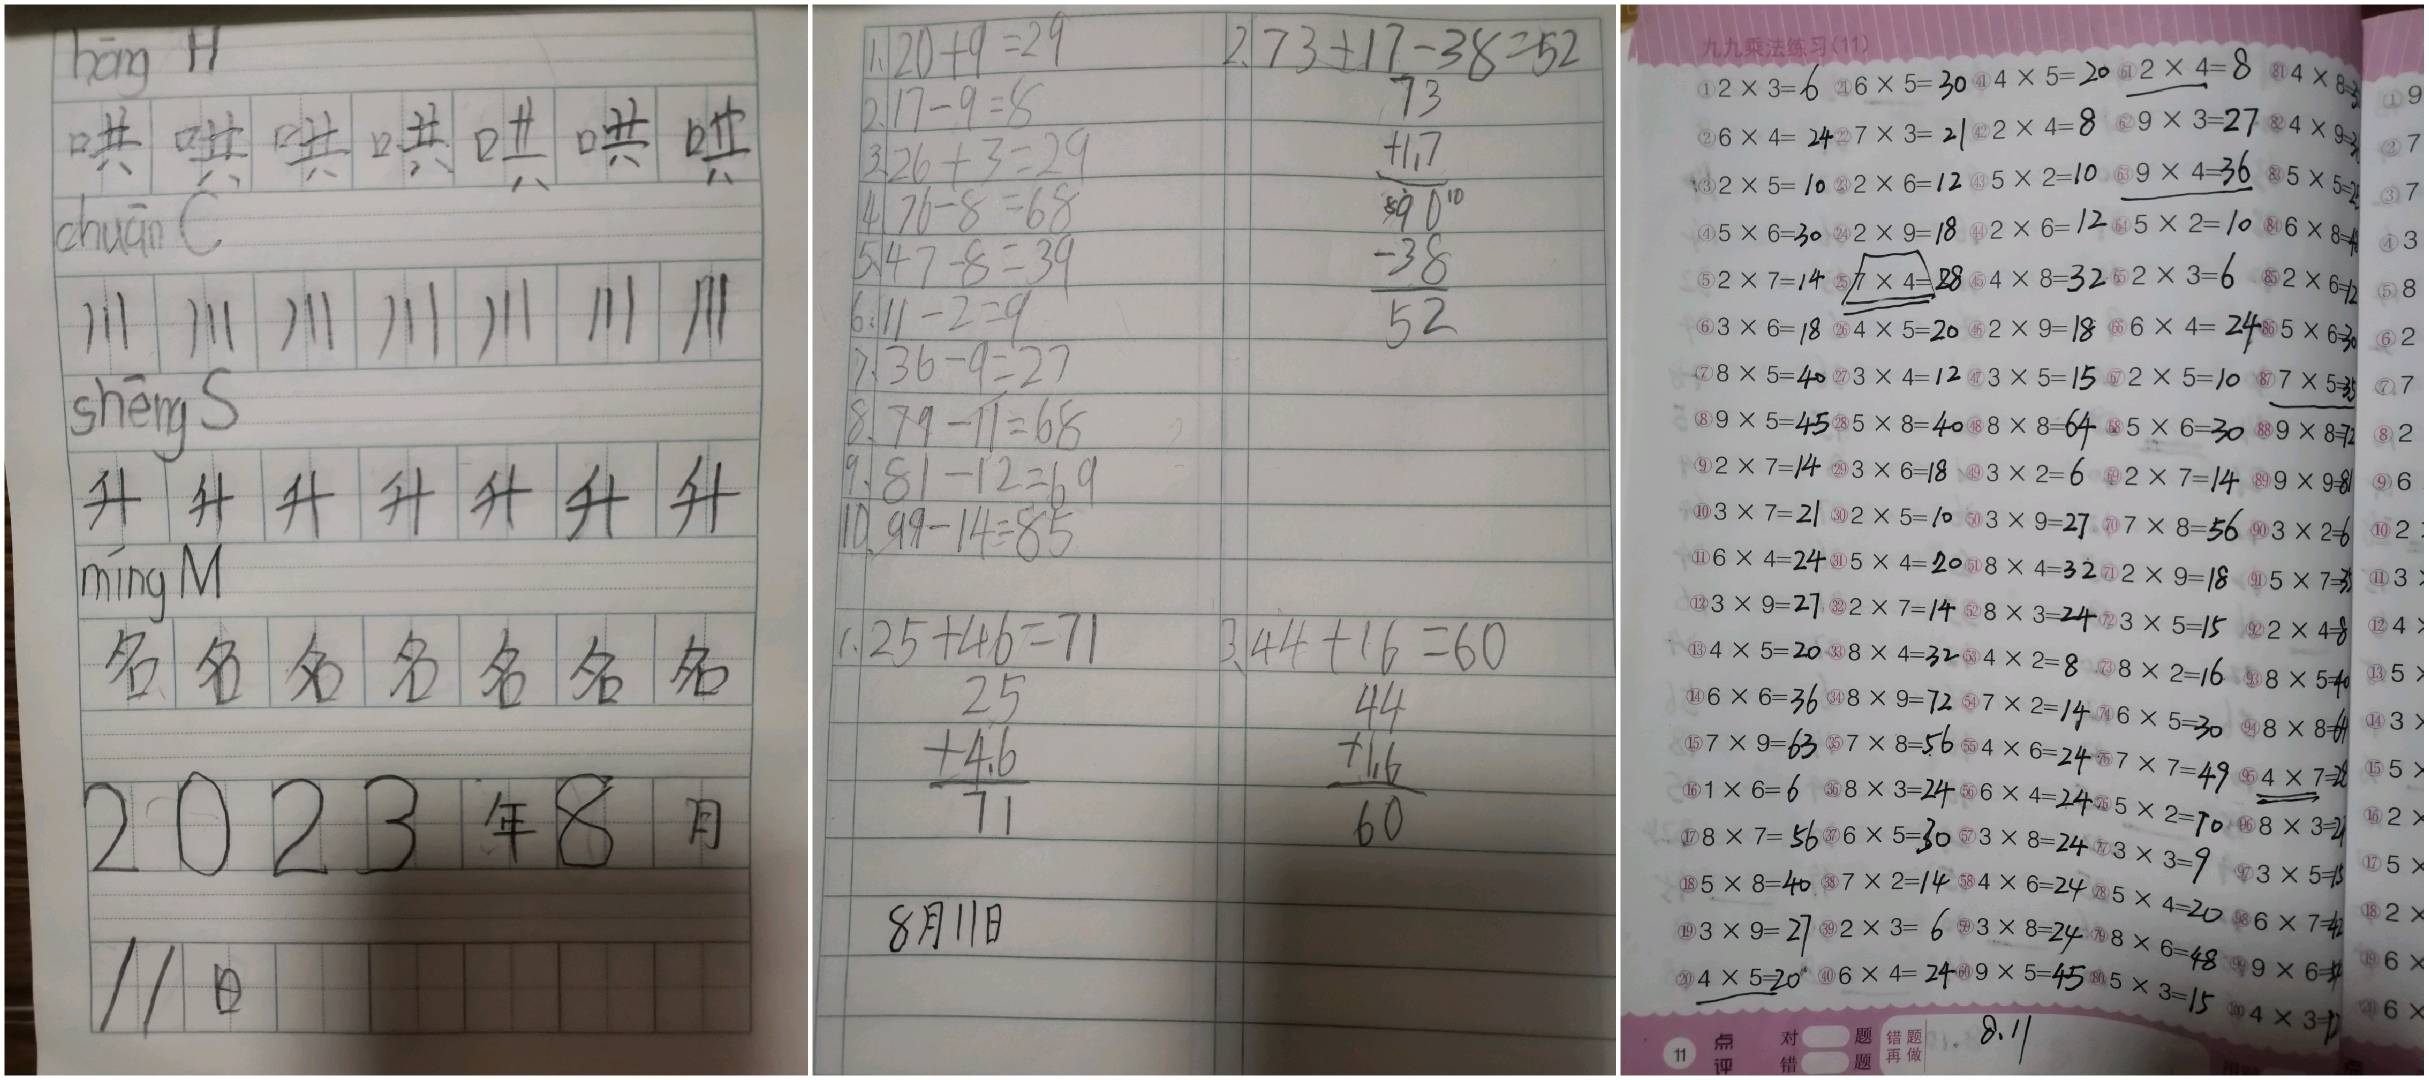 hōng H
哄 哄 哄 哄 哄 哄 哄
chuān C
川 川 川 川 川 川 川
shēng S
升 升 升 升 升 升 升
míng M
名 名 名 名 名 名 名
2023年8月
11日
1.20+9=29
2.17-9=8
3.26+3=29
4.76-8=68
5.47-8=39
6.11-2=9
7.36-9=27
8.79-11=68
9.81-12=69
10.99-14=85
2.73+17-38=52
73
+17
90
-38
52
1.25+46=71
25
+46
71
3.44+16=60
44
+16
60
8月11日
九九乘法练习(11)
①2×3=6 ㉑6×5=30 ㊶4×5=20 61 2×4=8 81 4×8=
②6×4=24 ㉒7×3=21 ㊷2×4=8 62 9×3=27 82 4×9=
③2×5=10 ㉓2×6=12 ㊸5×2=10 63 9×4=36 83 5×5=25
④5×6=30 ㉔2×9=18 ㊹2×6=12 64 5×2=10 84 6×8=
⑤2×7=14 ㉕7×4=28 ㊺4×8=32 65 2×3=6 85 2×6=12
⑥3×6=18 ㉖4×5=20 ㊻2×9=18 66 6×4=24 86 5×6=30
⑦8×5=40 ㉗3×4=12 ㊼3×5=15 67 2×5=10 87 7×5=35
⑧9×5=45 ㉘5×8=40 ㊽8×8=64 68 5×6=30 88 9×8=72
⑨2×7=14 ㉙3×6=18 ㊾3×2=6 69 2×7=14 89 9×9=81
⑩3×7=21 ㉚2×5=10 ㊿3×9=27 70 7×8=56 90 3×2=6
⑪6×4=24 ㉛5×4=20 51 8×4=32 71 2×9=18 91 5×7=35
⑫3×9=27 ㉜2×7=14 52 8×3=24 72 3×5=15 92 2×4=8
⑬4×5=20 ㉝8×4=32 53 4×2=8 73 8×2=16 93 8×5=40
⑭6×6=36 ㉞8×9=72 54 7×2=14 74 6×5=30 94 8×8=64
⑮7×9=63 ㉟7×8=56 55 4×6=24 75 7×7=49 95 4×7=28
⑯1×6=6 ㊱8×3=24 56 6×4=24 76 5×2=10 96 8×3=
⑰8×7=56 ㊲6×5=30 57 3×8=24 77 3×3=9 97 3×5=15
⑱5×8=40 ㊳7×2=14 58 4×6=24 78 5×4=20 98 6×7=42
⑲3×9=27 ㊴2×3=6 59 3×8=24 79 8×6=48 99 9×6=
⑳4×5=20 ㊵6×4=24 60 9×5=45 80 5×3=15 100 4×3=12
11 点评 对 题 错 题 错题再做 8.11
① 9
② 7
③ 7
④ 3
⑤ 8
⑥ 2
⑦ 7
⑧ 2
⑨ 6
⑩ 2
⑪ 3×
⑫ 4×
⑬ 5×
⑭ 3×
⑮ 5×
⑯ 2×
⑰ 5×
⑱ 2×
⑲ 6×
⑳ 6×